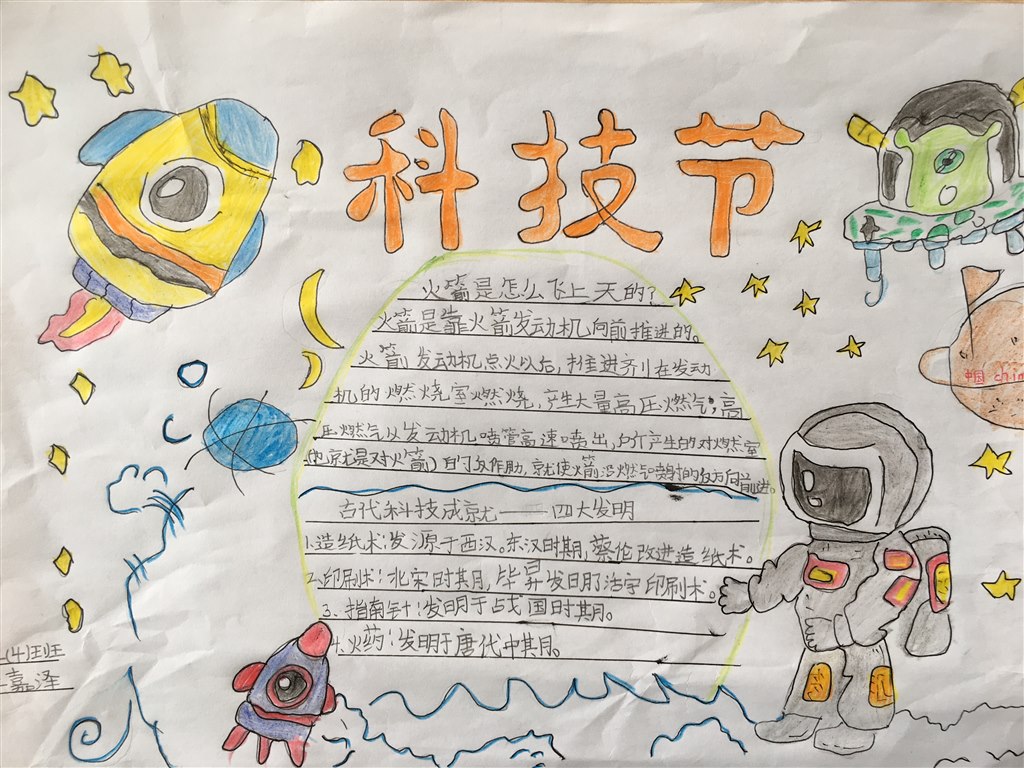 科技节
火箭是怎么飞上天的?
火箭是靠火箭发动机向前推进的。
火箭发动机点火以后,推进剂在发动
机的燃烧室燃烧,产生大量高压燃气;高
压燃气从发动机喷管高速喷出,所产生的对燃烧室
(也就是对火箭)的反作用力,就使火箭沿燃气喷射的反方向前进。
古代科技成就——四大发明
1.造纸术:发源于西汉。东汉时期,蔡伦改进造纸术。
2.印刷术:北宋时其月,毕昇发明了活字印刷术。
3.指南针:发明于战国时其月。
4.火药:发明于唐代中其月。
中国 chin
(4)班
嘉泽